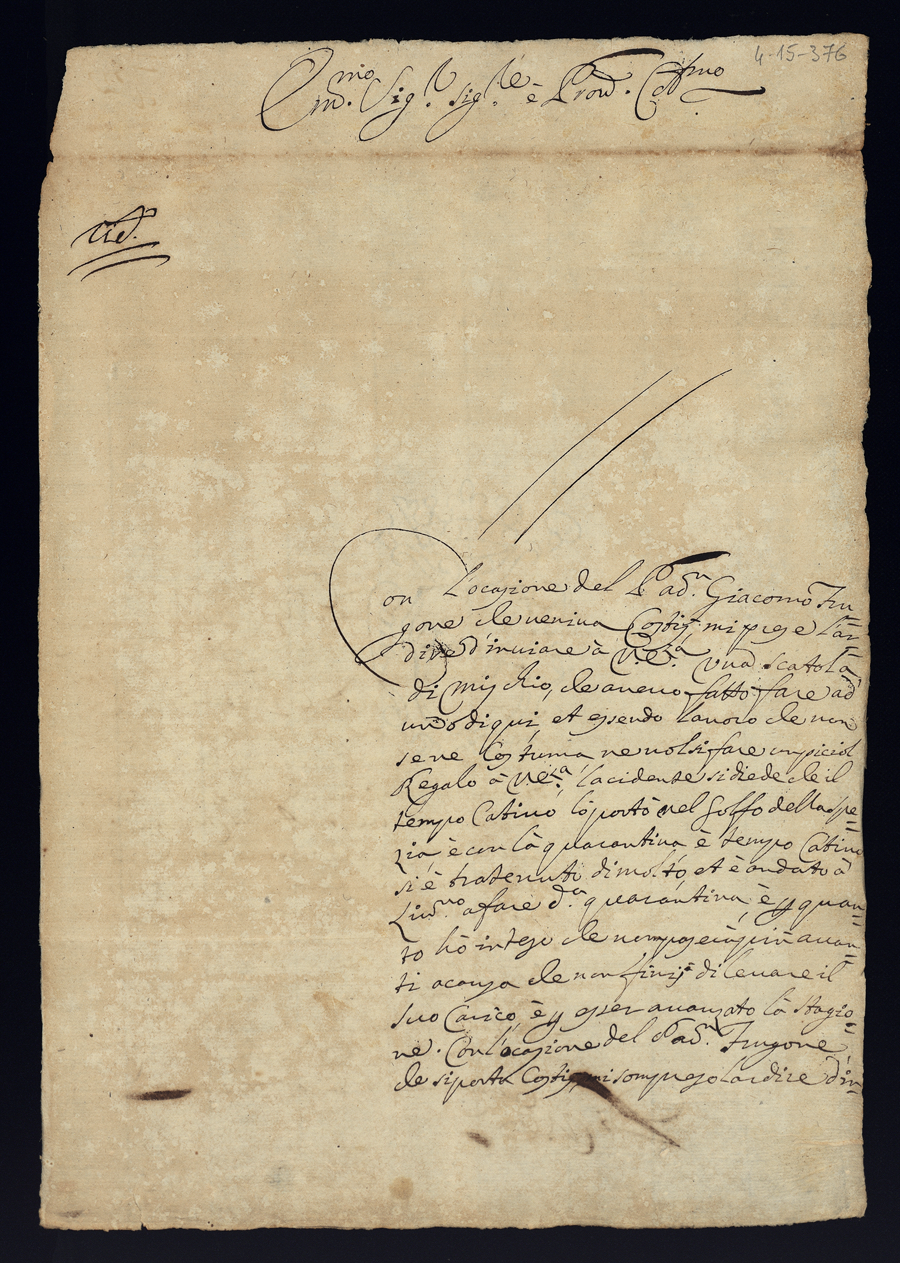 4-15-376
Om.mo Sig.r Sig.re è Pron. Col.mo
Con l'ocasione del Pad.n Giacomo Fru
gone che veniva Costì mi prese l'ar
dire d'inviare à V.E.za una scatola
di mischio, che avevo fatto fare ad
uno di qui, et essendo lavoro che non
se ne Costuma ne volsi fare un piciol
Regalo à V.E.za l'acidente si diede che il
tempo Cativo lo portò nel Golfo della spe
zia è con là quarantina è tempo Cativo
si è tratenuto di molto, et è andato à
Liv.no a fare d.a quarantina, è p quan
to hò inteso che non paserà più avan
ti a causa che non finisse di levare il
suo Carico, è p esser avanzato là stagio
ne. Con l'ocasione del Pad.n Frugone
che si porta Costì, mi som preso l'ardire d'in